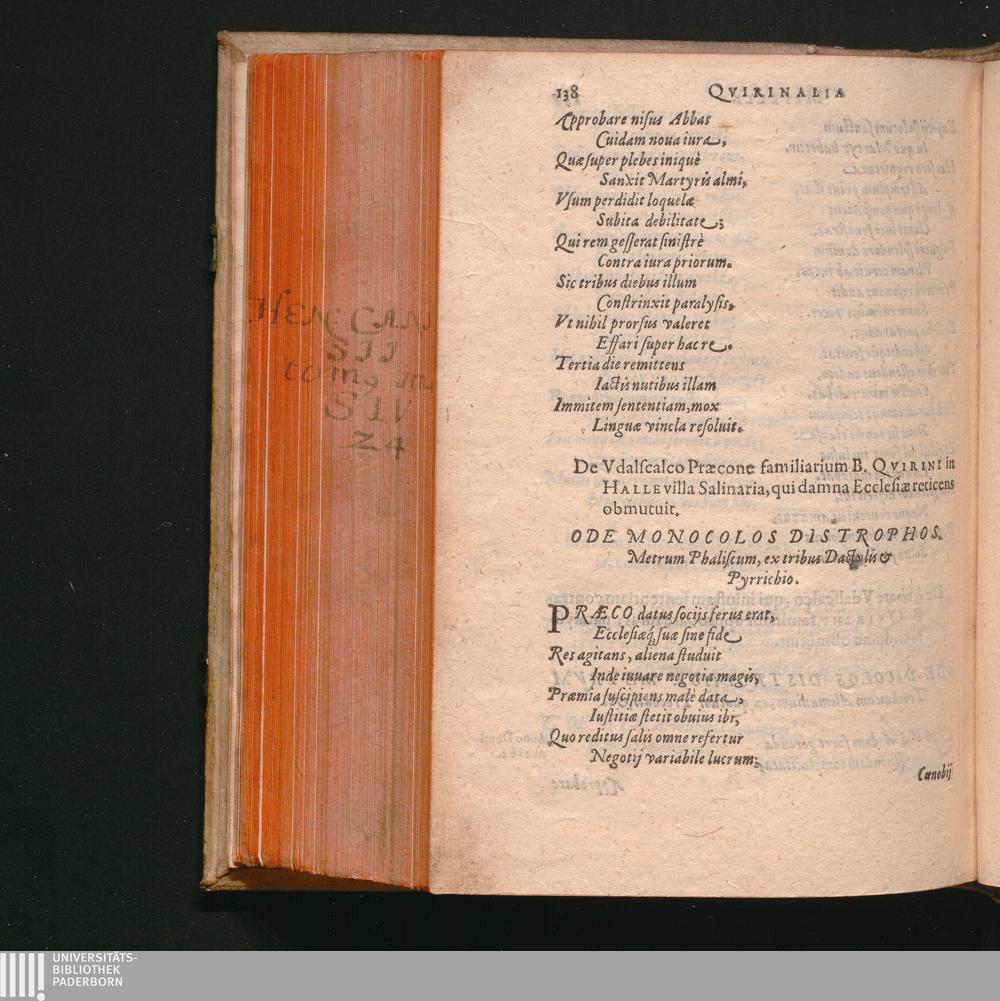 138 QVIRINALIA
Approbare nisus Abbas
Cuidam noua iura,
Quæ super plebes iniquè
Sanxit Martyris almi,
Vsum perdidit loquelæ
Subita debilitate;
Qui rem gesserat sinistrè
Contra iura priorum.
Sic tribus diebus illum
Constrinxit paralysis,
Vt nihil prorsus valeret
Effari super hac re.
Tertia die remittens
Iactis nutibus illam
Immitem sententiam, mox
Linguæ vincla resoluit.
De Vdalscalco Præcone familiarium B. QVIRINI in
HALLE villa Salinaria, qui damna Ecclesiæ reticens
obmutuit.
ODE MONOCOLOS DISTROPHOS.
Metrum Phaliscum, ex tribus Dactylis &
Pyrrichio.
PRÆCO datus socijs ferus erat,
Ecclesiæq́ suæ sine fide
Res agitans, aliena studuit
Inde iuuare negotia magis,
Præmia suscipiens malè data,
Iustitiæ stetit obuius ibi,
Quo reditus salis omne refertur
Negotij variabile lucrum;
Cœnobij
SIV
24
UNIVERSITÄTS-
BIBLIOTHEK
PADERBORN